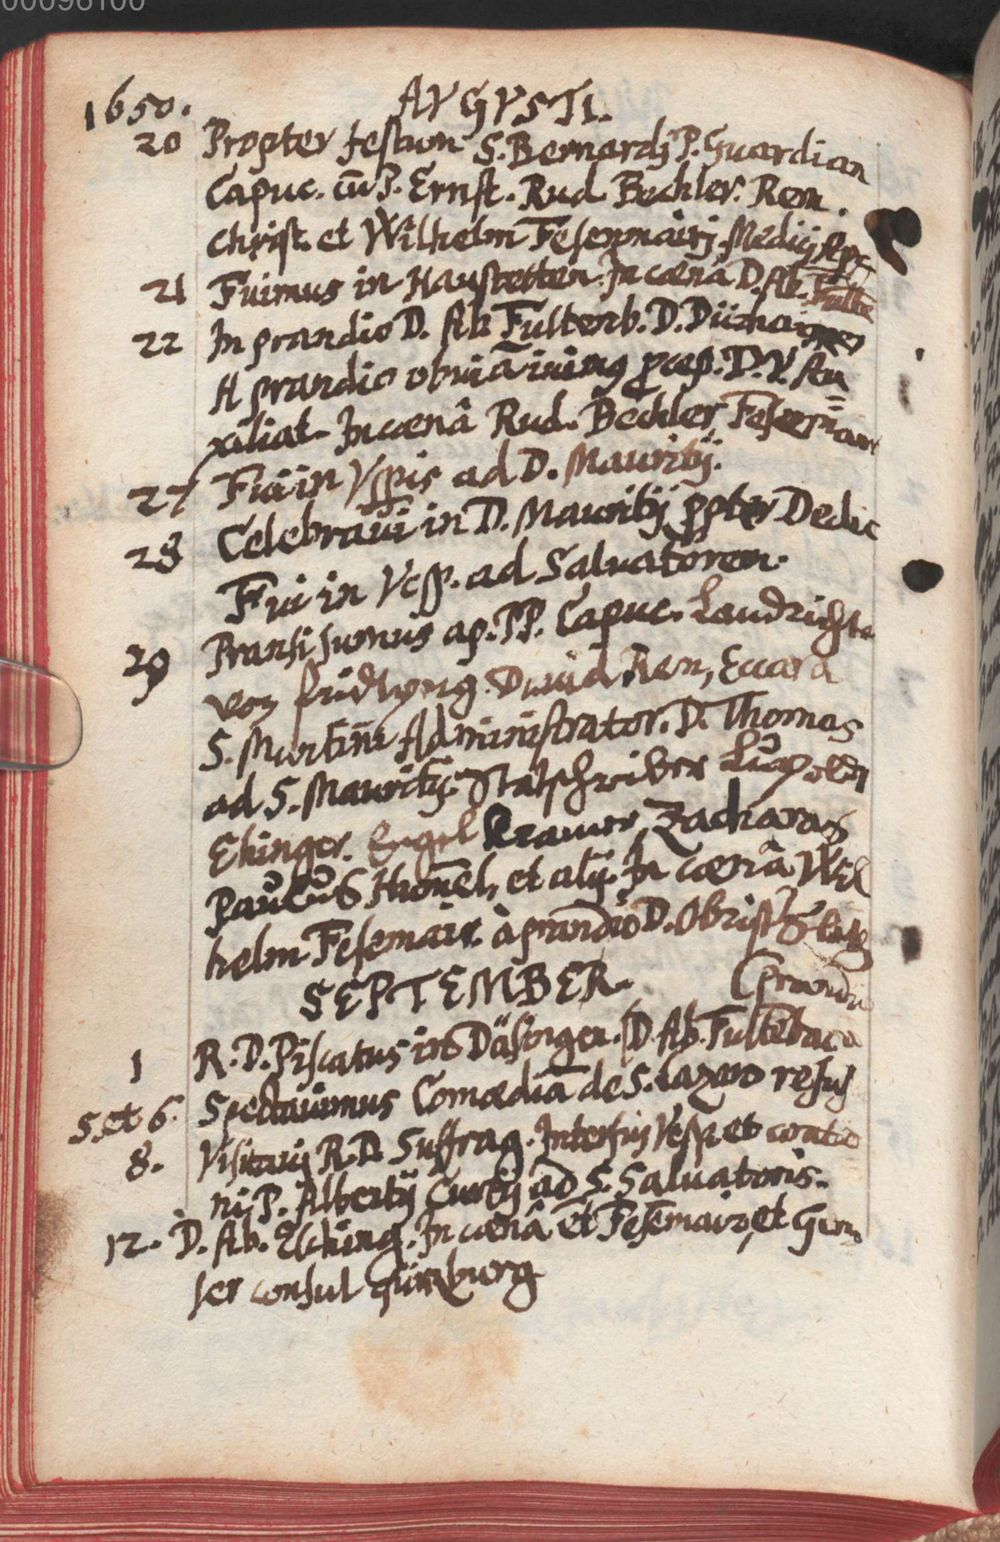 00096100
1650. AVGVSTI.
20 Propter festum S. Bernardj P. Guardian
Capuc. cũ P. Ernst. Rud. Bechler. Rem.
Christ. et Wilhelm Fesenmairj. Medicj
21 Fuimus in Haustetten. In cœnâ D. Ab. Fulte
22 In prandio D. Ab Fultenb. D.
A prandio obuiã iuimus D. V. Au=
xiliat. In cœnâ Rud. Bechler, Fesenmair
27 Fui in Vesperis ad D. Mauritij.
28 Celebraui in D. Mauritij ppter Dedic
Fui in Vesp. ad Saluatorem.
29 Pransi sumus ap. PP. Capuc. Landrichte
von fridtperg. Dauid Rem, Euard
S. Martini Administrator. D. Thomas
ad S. Mauritij. Statschreiber
Ehinger. Engel Kramer, Zacharas
Paulus Himel, et alij. In cœnâ Wil
helm Fesemair. à prandio D. Obrist
SEPTEMBER. (prandi
1 R. D. Piscatus in Däsingen. D. Ab. Fultẽbac
5. et 6. Spectauimus Comœdiã de S. Lazaro resus
8. Visitauj R. D. Suffrag. Interfuj Vesp. et oratio
nj P. Albertij Curtij ad S. Saluatoris.
12. D. Ab. Elching. In cœnâ et Fesẽmair, et
ser consul Günzburg